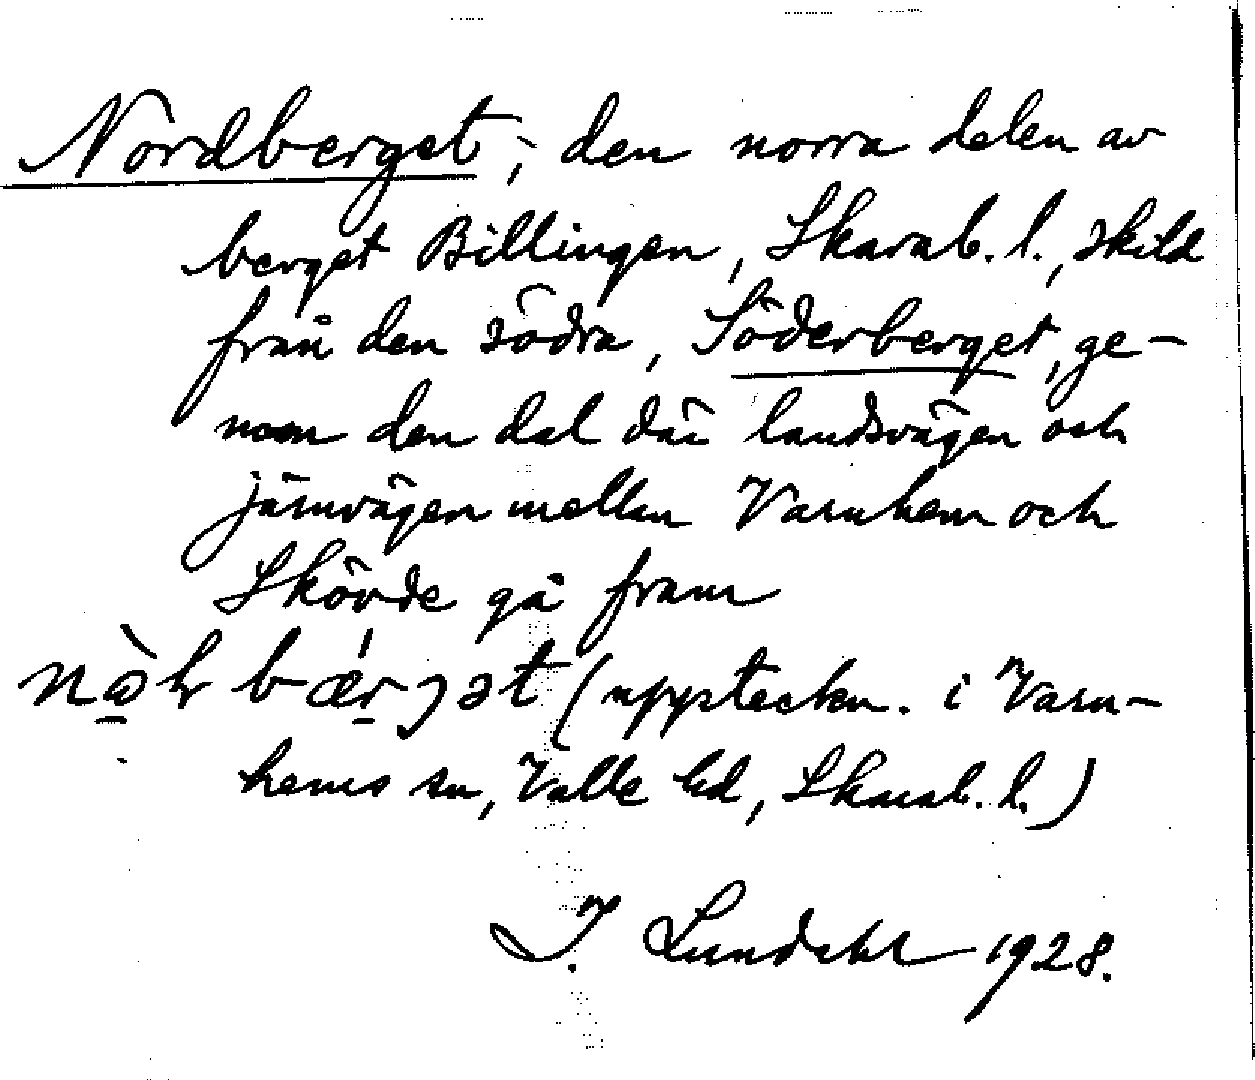 Nordberget, den norra delen av
berget Billingen, Skarab. l., skild
från den södra, Söderberget, ge-
nom den dal där landsvägen och
järnvägen mellan Varnhem och
Skövde gå fram
bærjət (uppteckn. i Varn-
hems sn, Valle hd, Skarab. l.)
I. Lundahl 1928.